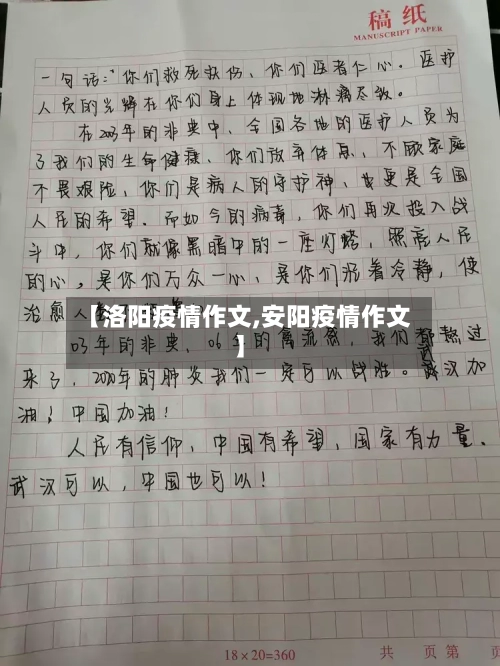 稿纸
MANUSCRIPT PAPER
一句话：“你们救死扶伤、你们医者仁心。医护
人员的光辉在你们身上体现地淋漓尽致。
在2003年的非典中，全国各地的医护人员为
了我们的生命健康、你们放弃休息，不顾家庭
不畏艰险，你们是病人的守护神，也更是全国
人民的希望。而如今的病毒，你们再次投入战
斗中，你们就像黑暗中的一座灯塔，照亮人民
的心。是你们万众一心，是你们沉着冷静，使
治愈人
【洛阳疫情作文,安阳疫情作文
】
03年的非典，06年的禽流感，我们都熬过
来了，2020年的肺炎我们一定可以战胜。武汉加
油！中国加油！
人民有信仰，中国有希望，国家有力量。
武汉可以，中国也可以！
18×20=360
共 页 第 页